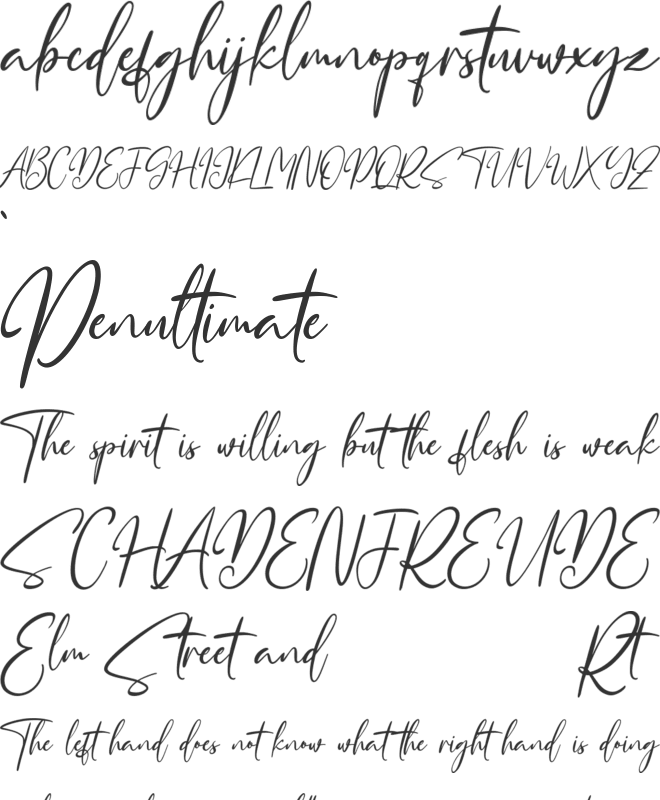 abcdefghijklmnopqrstuvwxyz
ABCDEFGHIJKLMNOPQRSTUVWXYZ
`
Penultimate
The spirit is willing but the flesh is weak
SCHADENFREUDE
Elm Street and Rt
The left hand does not know what the right hand is doing